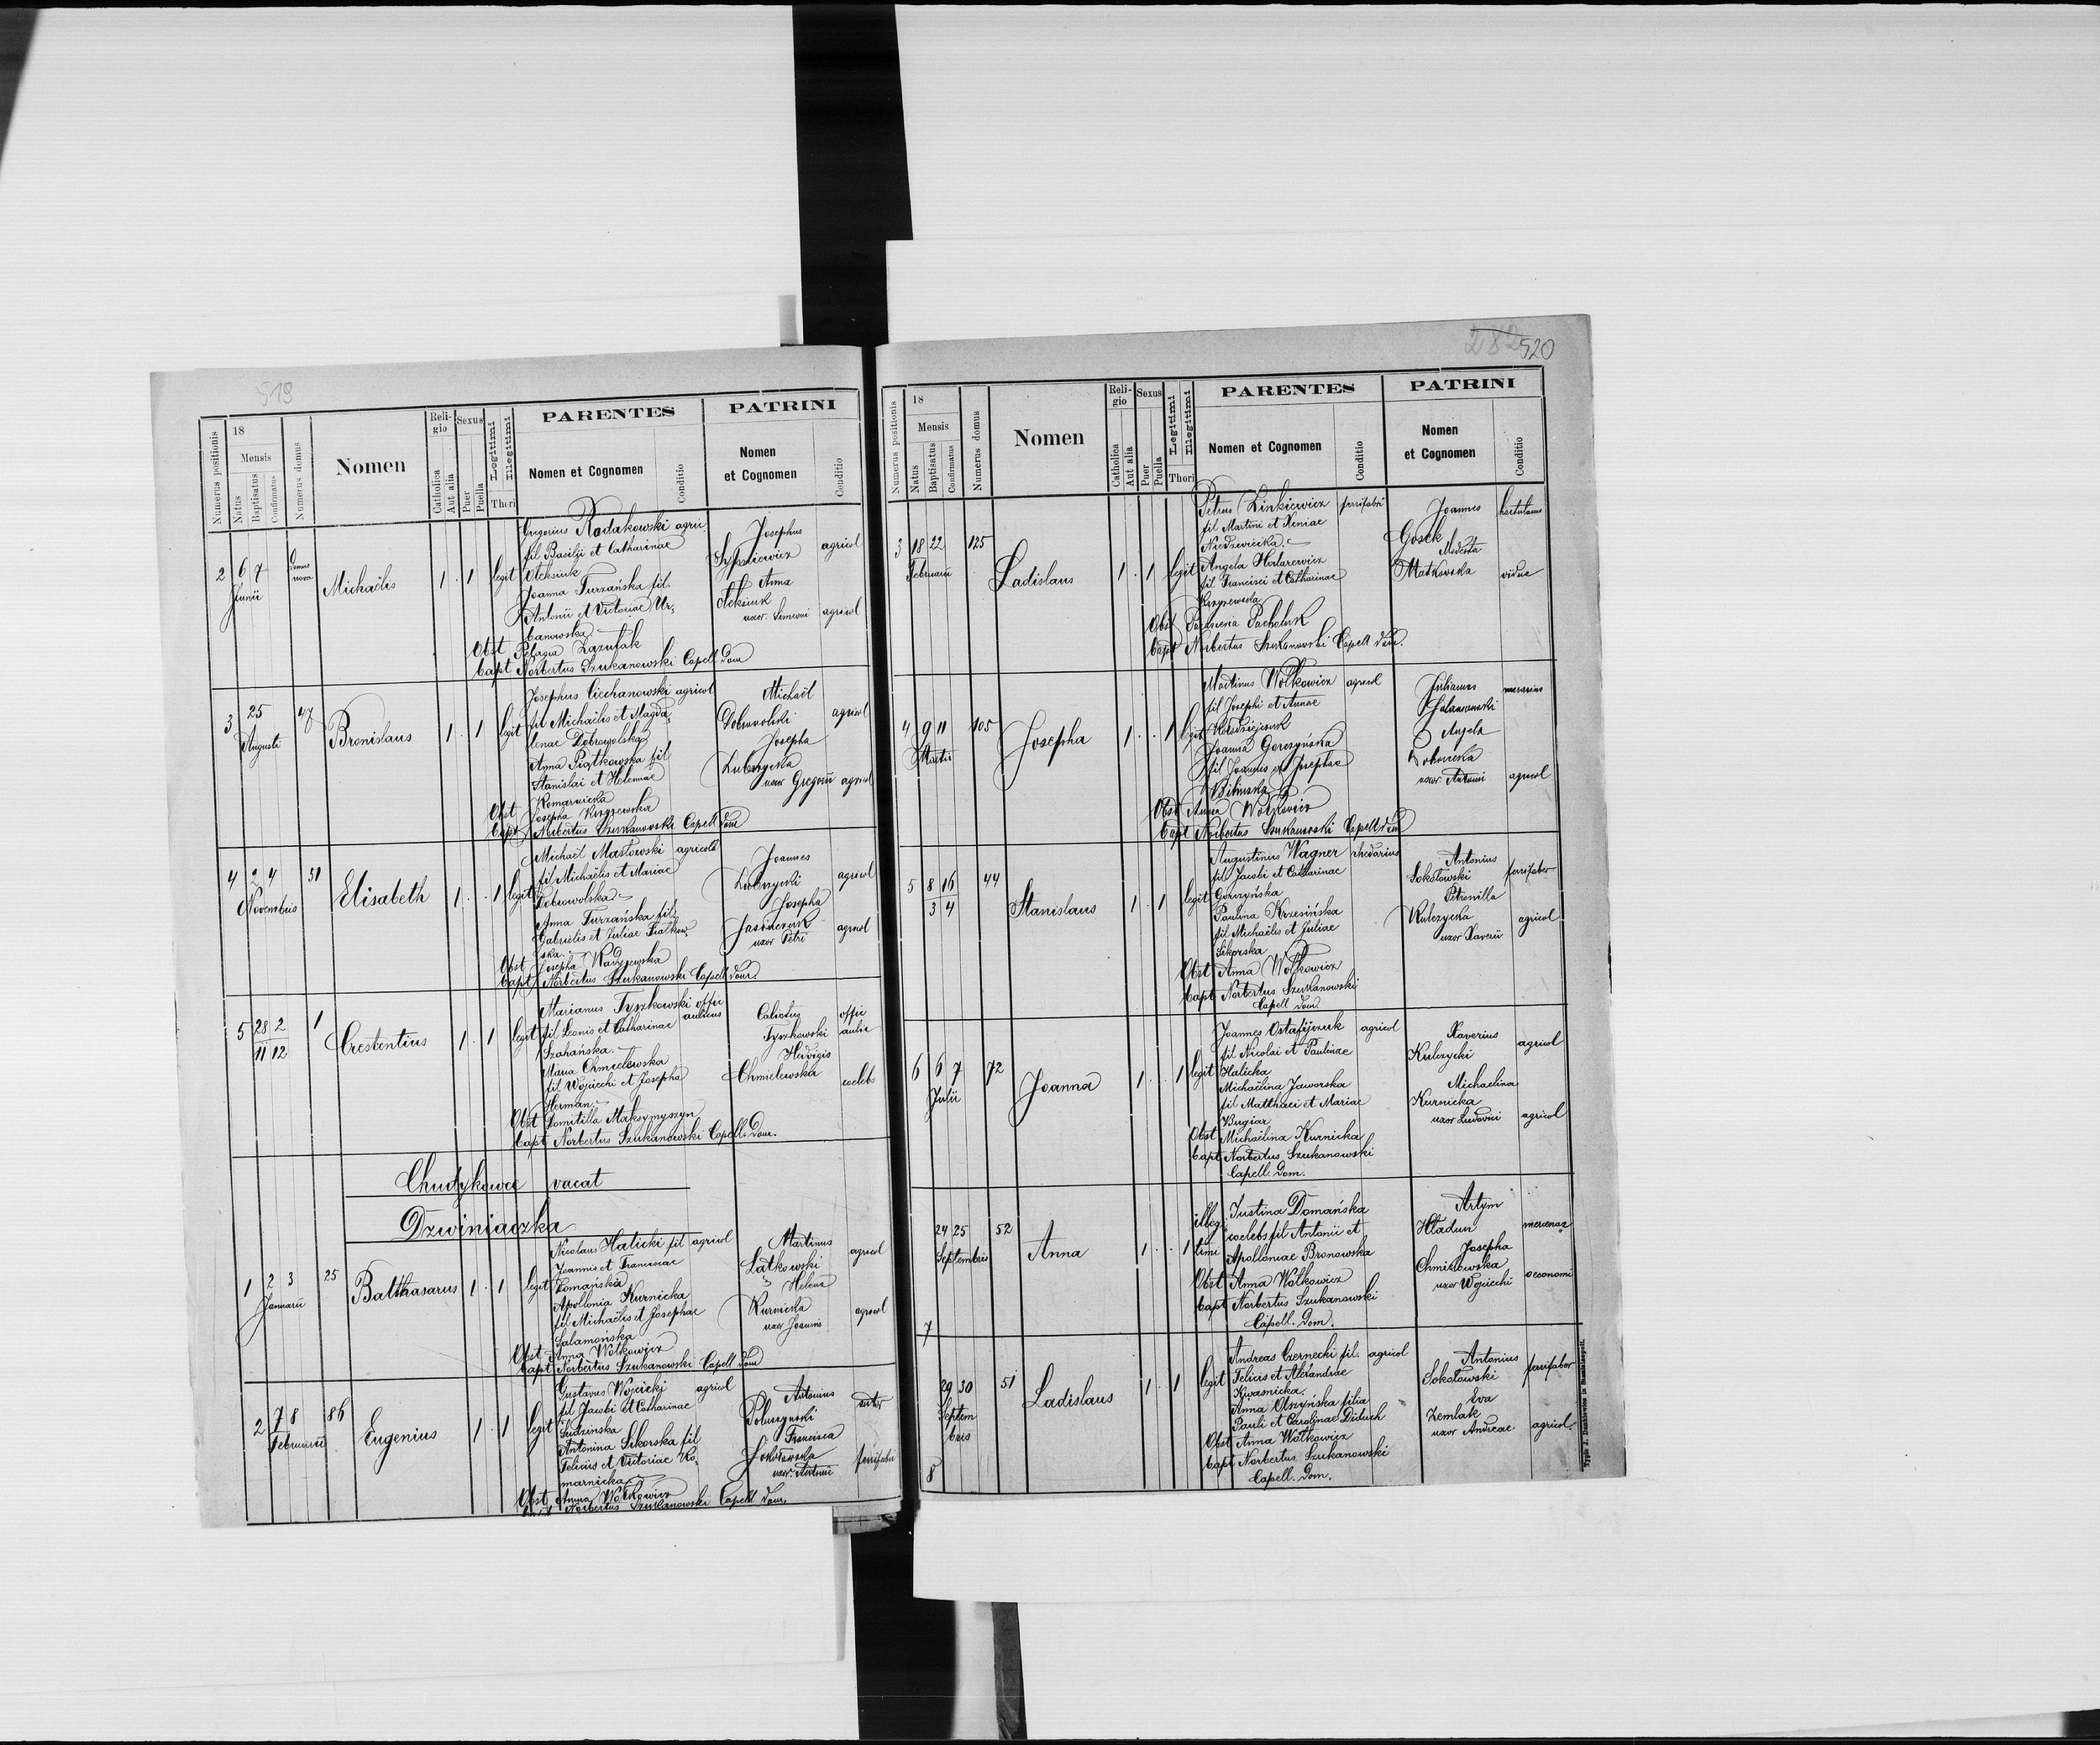 519
Numerus positionis
18
Mensis
Natus
Baptisatus
Confirmatus
Numerus domus
Nomen
Religio
Catholica
Aut alia
Sexus
Puer
Puella
Legitimi
Illegitimi
Thori
PARENTES
Nomen et Cognomen
Conditio
PATRINI
Nomen
et Cognomen
Conditio
2 6 7 Domus nova
Junii
Michaëlis
1 . 1 legit
Gregorius Rodakowski agric
fil Basilii et Catharinae
Oleksiuk
Joanna Turzańska fil.
Antonii et Victoriae Ur-
banowska
Obst Pelagia Lazufak
bapt Norbertus Szukanowski Capell. Dom
Josephus
agricol
Anna
Oleksiuk
uxor Simeoni agricol
3 25 47
Augusti
Bronislaus
1 . 1 legit
Josephus Ciechanowski agricol
fil Michaëlis et Magda-
lenae Dobrowolska
Anna Piątkowska fil
Stanislai et Helenae
Komarnicka
Obst Josepha Krzyzewska
bapt Norbertus Szukanowski Capell Dom
Michaël
Dobrowolski agricol
Josepha
Lubczycka
uxor Gregorii agricol
4 2 4 31
Novembris
Elisabeth
1 . . 1 legit
Michaël Masłowski agricola
fil Michaëlis et Mariae
Dobrowolska
Anna Turzańska fil
Gabrielis et Juliae Fiałkow-
ska
Obst Josepha
bapt Norbertus Szukanowski Capell Dom.
Joannes
agricol
Josepha
uxor Petri agricol
5 28 2 1
11 12
Crestentius
1 . 1 legit
Marianus Tyszkowski offic
aulicus
fil Leonis et Catharinae
Szahańska
Maria Chmielowska
fil Wojciechi et Josepha
Herman
Obst Domitilla Maksymyszyn
bapt Norbertus Szukanowski Capell. Dom.
offic
Tyszkowski aulic
Hedvigis
Chmielewska coelebs
Chudykowce vacat
Dzwiniaczka
1 2 3 25
Januarii
Balthasarus
1 . 1 legit
Nicolaus Halicki fil agricol
Joannis et Franciscae
Tomańska
Apollonia Kurnicka
fil Michaëlis et Josephae
Salamońska
Obst Anna Wołkowicz
bapt Norbertus Szukanowski Capell Dom
Martinus
Latkowski agricol
Helena
Kurnicka
uxor Joannis agricol
2 7 8 86
Februarii
Eugenius
1 . 1 legit
Gustavus Wojcicki agricol
fil Jacobi et Catharinae
Sudzinska
Antonina Sikorska fil
Felicis et Victoriae Ko-
marnicka
Obst Anna Wołkowicz
bapt Norbertus Szukanowski Capell Dom.
Antonius
sutor
Francisca
Sokołowska
uxor Antonii ferrifabri
282 520
Numerus positionis
18
Mensis
Natus
Baptisatus
Confirmatus
Numerus domus
Nomen
Religio
Catholica
Aut alia
Sexus
Puer
Puella
Legitimi
Illegitimi
Thori
PARENTES
Nomen et Cognomen
Conditio
PATRINI
Nomen
et Cognomen
Conditio
3 18 22 125
Februarii
Ladislaus
1 . 1 legit
Petrus Linkiewicz ferrifabri
fil Martini et Xeniae
Niedzwiecka
Angela Hodarewicz
fil Francisci et Catharinae
Krzyzewska
Obst Pacholuk
bapt Norbertus Szukanowski Capell Dom.
Joannes hortulanus
Gosek
Modesta
Matkowska vidua
4 9 11 105
Martii
Josepha
1 . . 1 legit
Martinus Wołkowicz agricol
fil Josephi et Annae
Kołodziejczuk
Joanna Gorczyńska
fil Joannis et Josephae
Bilinska
Obst Anna Wołkowicz
bapt Norbertus Szukanowski Capell Dom
Julianus
Angela
uxor Antonii agricol
5 8 16 44
3 4
Stanislaus
1 . 1 legit
Augustinus Wagner rhedarius
fil Jacobi et Catharinae
Gorczyńska
Paulina Krzesińska
fil Michaëlis et Juliae
Sikorska
Obst Anna Wołkowicz
bapt Norbertus Szukanowski
Capell Dom
Antonius
Sokołowski ferrifaber
Petronilla
Kulczycka agricol
uxor Xaverii
6 6 7 72
Julii
Joanna
1 . . 1 legit
Joannes Ostafijczuk agricol
fil Nicolai et Paulinae
Halicka
Michaëlina Jaworska
fil Matthaei et Mariae
Bugiar
Obst Michaëlina Kurnicka
bapt Norbertus Szukanowski
Capell. Dom.
Xaverius
Kulczycki agricol
Michaelina
Kurnicka
uxor Ludovici agricol
7
24 25 52
Septembris
Anna
1 . . 1 illegi-
timi
Justina Domańska
coelebs fil Antonii et
Apolloniae Bronowska
Obst Anna Wołkowicz
bapt Norbertus Szukanowski
Capell. Dom.
Artym
Hładun mercenar
Josepha
Chmielowska
uxor Wojciechi oeconomi
8
29 30 51
Septem
bris
Ladislaus
1 . 1 legit
Andreas Czernecki fil. agricol
Felicis et Alexandrae
Kwasnicka
Anna Olszyńska filia
Pauli et Carolinae Diduch
Obst Anna Wołkowicz
bapt Norbertus Szukanowski
Capell. Dom.
Antonius
Sokołowski ferrifaber
Eva
Zemlak
uxor Andreae agricol.